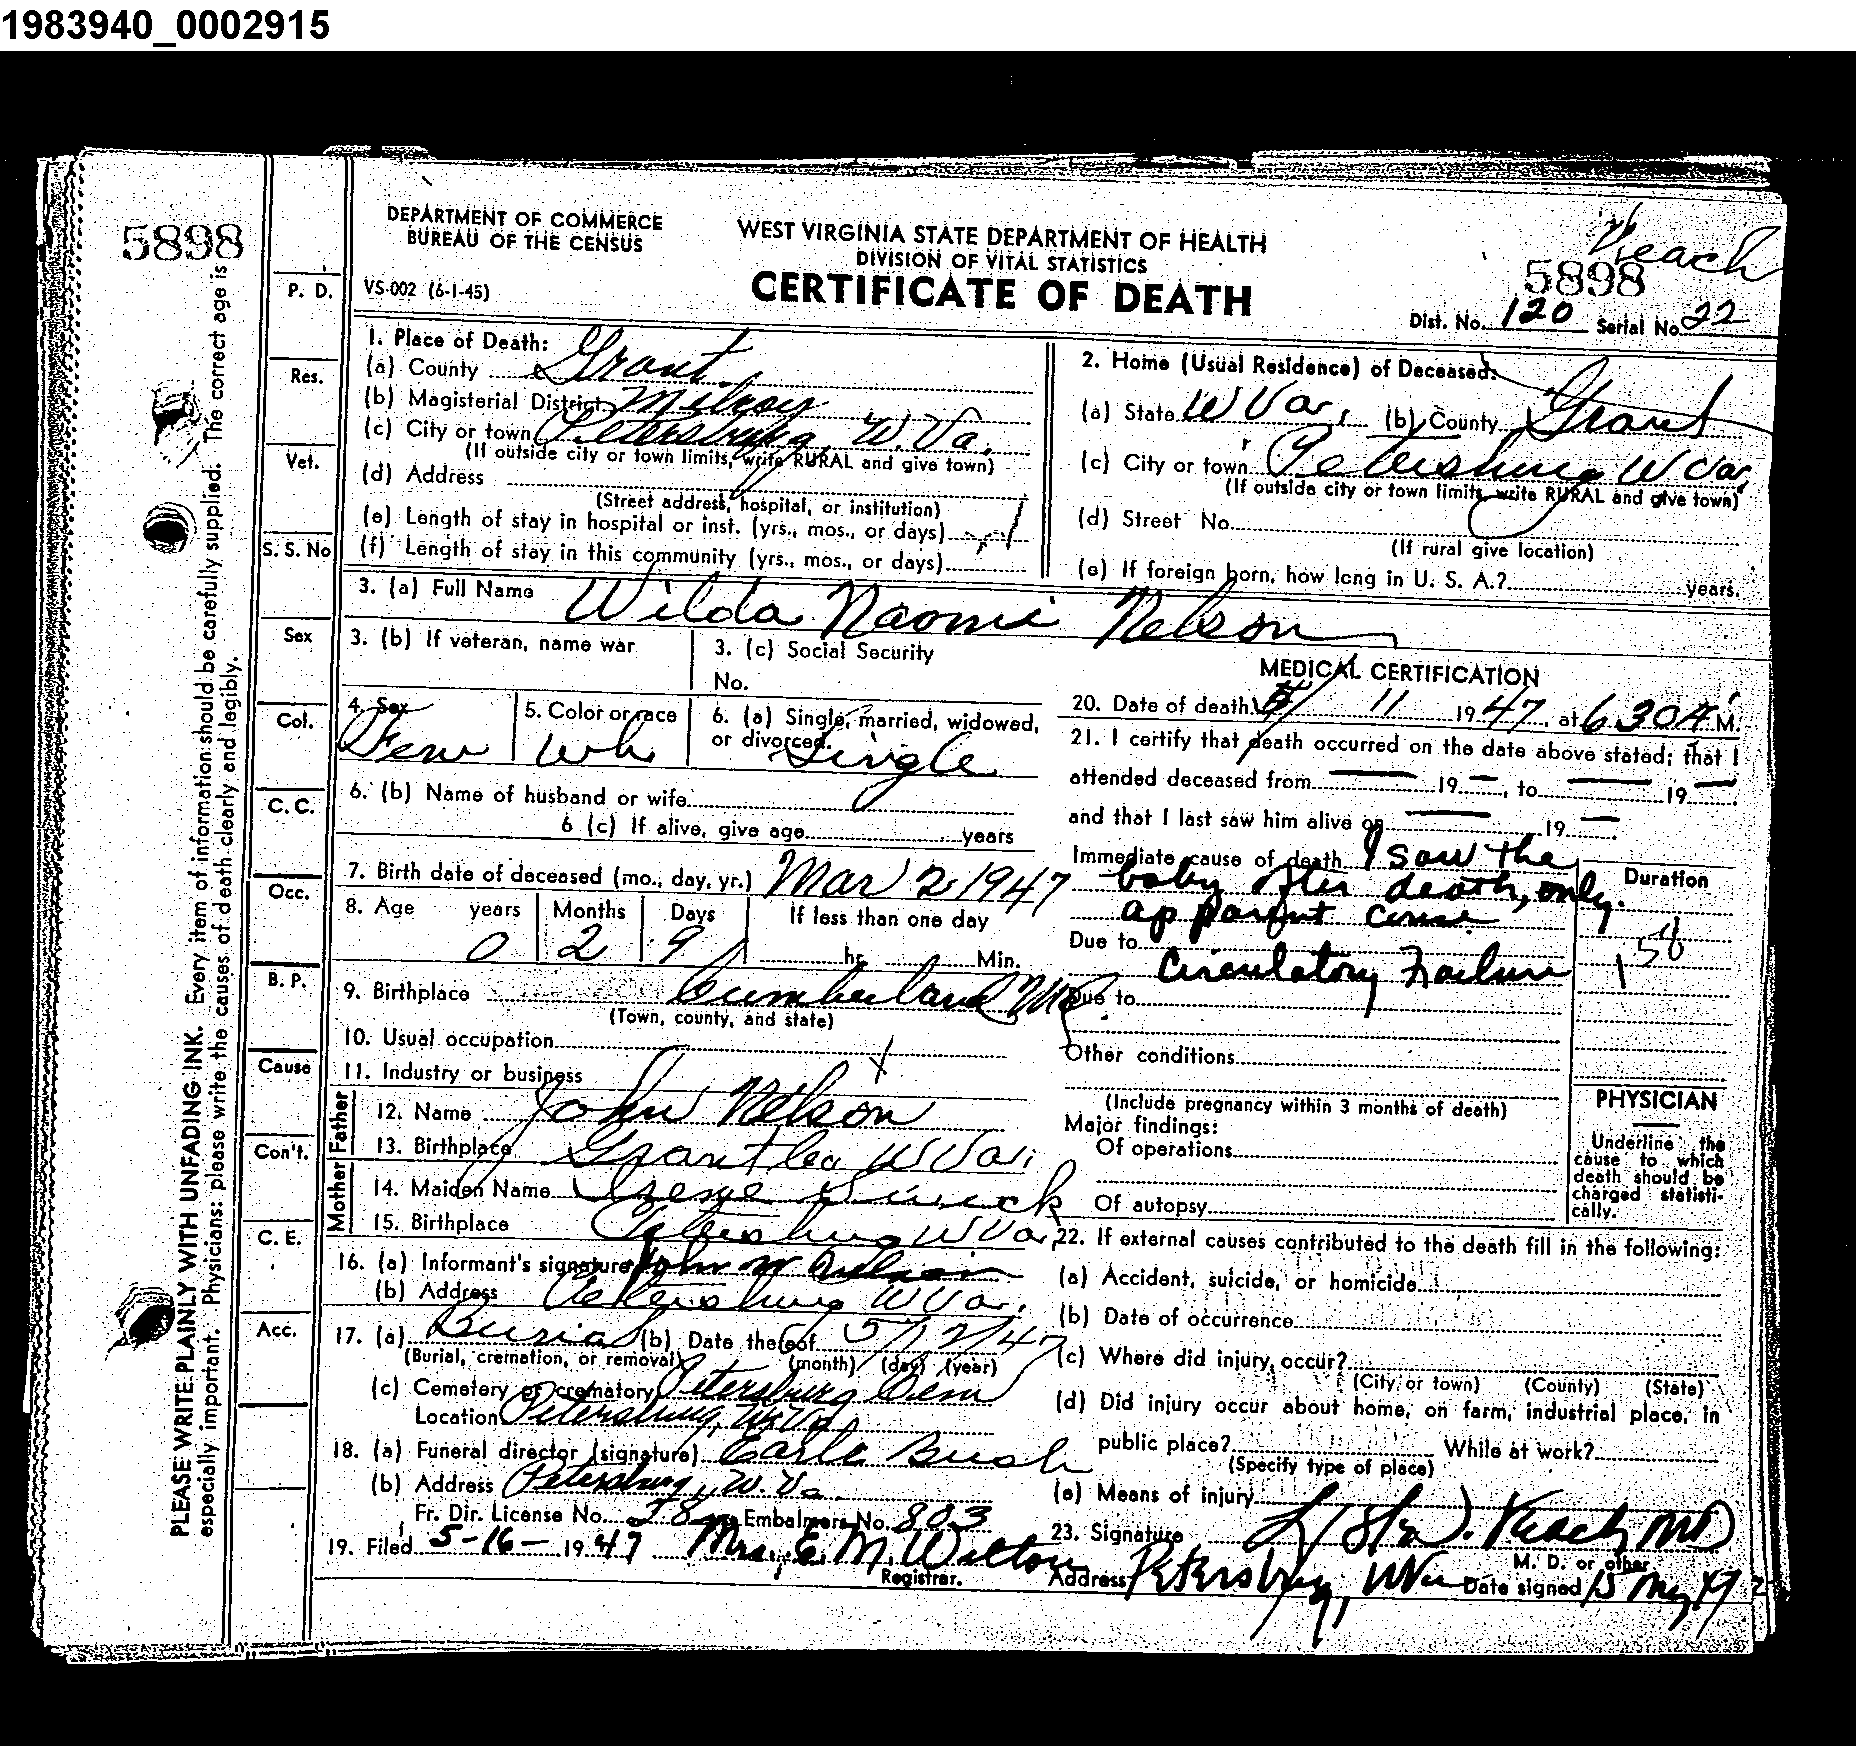 1983940_0002915
5898
DEPARTMENT OF COMMERCE
BUREAU OF THE CENSUS
WEST VIRGINIA STATE DEPARTMENT OF HEALTH
DIVISION OF VITAL STATISTICS
VS-002 (6-1-45)
CERTIFICATE OF DEATH
Veach
5898
Dist. No. 120 Serial No. 22
PLEASE WRITE PLAINLY WITH UNFADING INK. Every item of information should be carefully supplied. The correct age is
especially important. Physicians: please write the causes of death clearly and legibly.
P. D.
Res.
Vet.
S. S. No
Sex
Col.
C. C.
Occ.
B. P.
Cause
Con't.
C. E.
Acc.
1. Place of Death:
(a) County Grant
(b) Magisterial District Milroy
(c) City or town Petersburg, W.Va.
(If outside city or town limits, write RURAL and give town)
(d) Address
(Street address, hospital, or institution)
(e) Length of stay in hospital or inst. (yrs., mos., or days)
(f) Length of stay in this community (yrs., mos., or days)
2. Home (Usual Residence) of Deceased:
(a) State W Va. (b) County Grant
(c) City or town Petersburg W Va.
(If outside city or town limits, write RURAL and give town)
(d) Street No.
(If rural give location)
(e) If foreign born, how long in U. S. A.? years.
3. (a) Full Name Wilda Naomi Nelson
3. (b) If veteran, name war
3. (c) Social Security
No.
4. Sex Fem
5. Color or race Wh
6. (a) Single, married, widowed,
or divorced. Single
6. (b) Name of husband or wife
6 (c) If alive, give age years
7. Birth date of deceased (mo., day, yr.) Mar 2 1947
8. Age years Months Days If less than one day
0 2 9 hr. Min.
9. Birthplace Cumberland Md.
(Town, county, and state)
10. Usual occupation
11. Industry or business X
Father
12. Name John Nelson
13. Birthplace Grant Co W Va.
Mother
14. Maiden Name Irene
15. Birthplace Petersburg W Va.
16. (a) Informant's signature John W Nelson
(b) Address Petersburg W Va.
17. (a) Burial (b) Date thereof 5/12/47
(Burial, cremation, or removal) (month) (day) (year)
(c) Cemetery or crematory Petersburg Cem
Location Petersburg, W.Va
18. (a) Funeral director (signature) Earle Bush
(b) Address Petersburg, W. Va.
Fr. Dir. License No. Embalmers No. 803
19. Filed 5-16- 1947 Mrs. E. M. Welton
Registrar.
MEDICAL CERTIFICATION
20. Date of death 5/ 11 1947, at 6 30 A M.
21. I certify that death occurred on the date above stated; that I
attended deceased from — 19 —, to — 19 —
and that I last saw him alive on — 19 —.
Immediate cause of death I saw the
baby after death, only.
apparent cause
Due to
Circulatory Failure
Due to
Duration
158
Other conditions
(Include pregnancy within 3 months of death)
Major findings:
Of operations
Of autopsy
PHYSICIAN
Underline the
cause to which
death should be
charged statisti-
cally.
22. If external causes contributed to the death fill in the following:
(a) Accident, suicide, or homicide
(b) Date of occurrence
(c) Where did injury occur?
(City or town) (County) (State)
(d) Did injury occur about home, on farm, industrial place, in
public place? While at work?
(Specify type of place)
(e) Means of injury
23. Signature Veach MD
M. D. or other
Address Petersburg, W Va Date signed 15 May 47